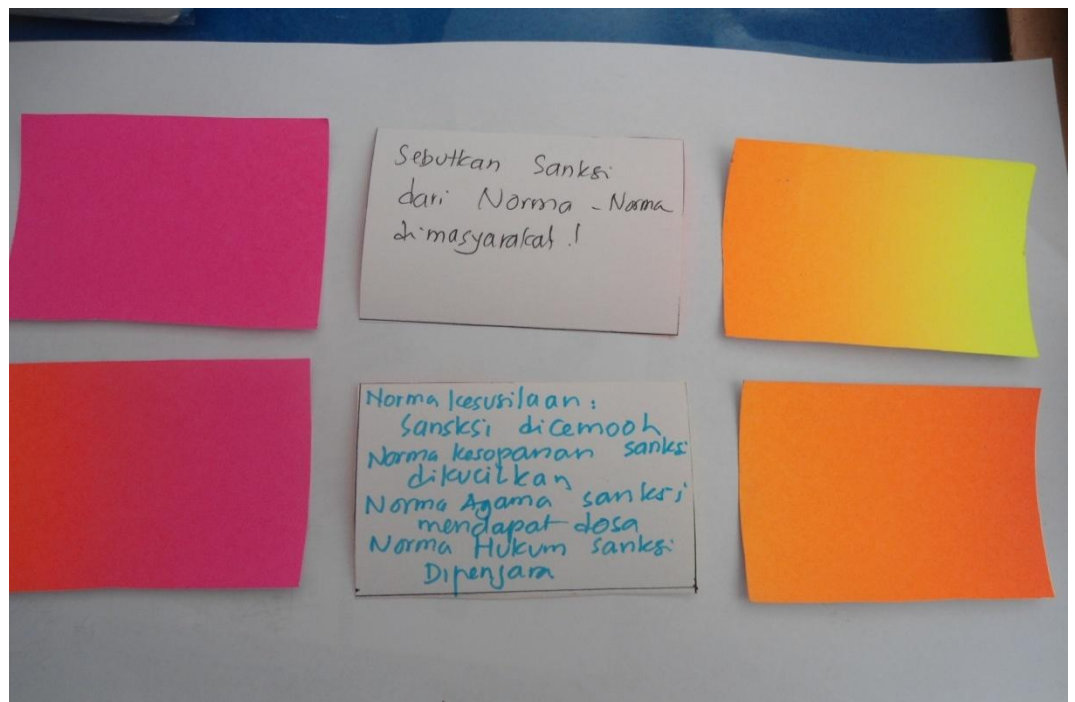 Sebutkan Sanksi
dari Norma - Norma
dimasyarakat !
Norma kesusilaan :
Sansksi dicemooh
Norma kesopanan sanksi
dikucilkan
Norma Agama sanksi
mendapat dosa
Norma Hukum sanksi
Dipenjara